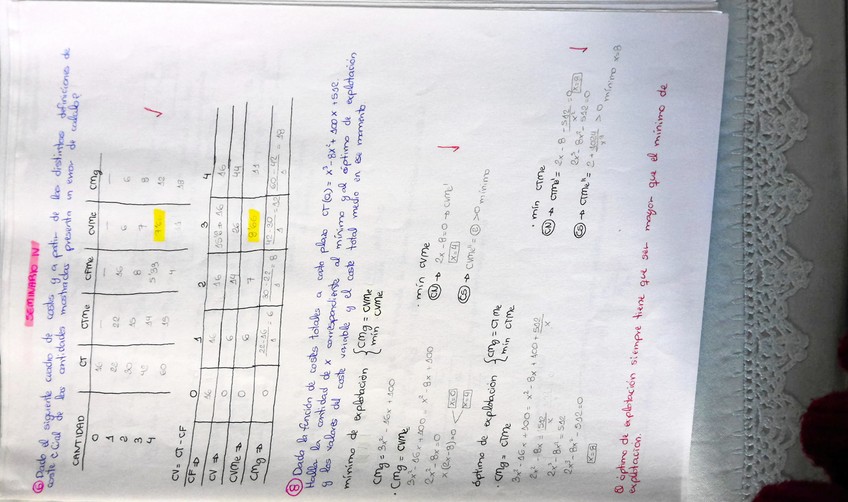 SEMINARIO IV
⑥ Dado el siguiente cuadro de costes y a partir de las distintas definiciones de
coste ¿Cuál de las cantidades mostradas presenta un error de cálculo?
CANTIDAD CT CTMe CFMe CVMe CMg
0 16 — — — —
1 22 22 16 6 6
2 30 15 8 7 8
3 42 14 5'33 12
4 60 15 4 11 18
CV = CT - CF
0 1 2 3 4
CF → 16 16 16 16
CV → 0 6 14 26 44
CVMe → 0 6 7 8'66 11
CMg → 0 22-16/1 = 6 30-22/1 = 8 42-30/1 = 12 60-42/1 = 18
⑧ Dada la función de costes totales a corto plazo CT(Q) = x³-8x²+100x+512.
Halla la cantidad de x correspondiente al mínimo y al óptimo de explotación
y los valores del coste variable y el coste total medio en ese momento
mínimo de explotación { CMg = CVMe
min CVMe
CMg = 3x² - 16x + 100
· CMg = CVMe
3x² - 16x + 100 = x² - 8x + 100
2x² - 8x = 0
x(2x-8) = 0 x=0
x=4
· min CVMe
CN → 2x - 8 = 0 → CVMe'
x=4
CS → CVMe'' = 2 > 0 mínimo
óptimo de explotación { CMg = CTMe
min CTMe
· CMg = CTMe
3x² - 16x + 100 = x² - 8x + 100 + 512/x
2x² - 8x = 512/x
2x³ - 8x² = 512
2x³ - 8x² - 512 = 0
x=8
· min CTMe
CN → CTMe' = 2x - 8 - 512/x² = 0
2x³ - 8x² - 512 = 0 x=8
CS → CTMe'' = 2 + 1024/x³ > 0 mínimo x=8
óptimo de explotación siempre tiene que ser mayor que el mínimo de
explotación.